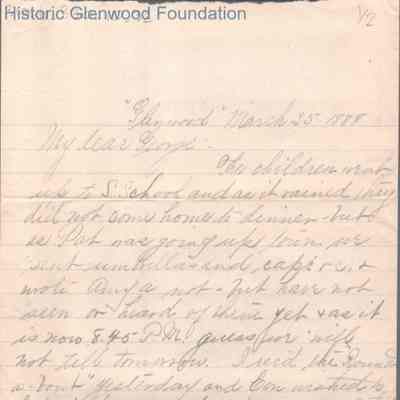 Historic Glenwood Foundation
1/2
"Glenwood" March 25 1888
My dear George:
The children went
up to S. School and as it rained they
did not come home to dinner - but
as Pat was going up town we
sent umbrellas and caps &c. &
wrote a not - but have not
seen or heard of them yet & as it
is now 8.45 P.M. guess we will
not till tomorrow. I recd the "Round
a-bout" yesterday and Con wished to